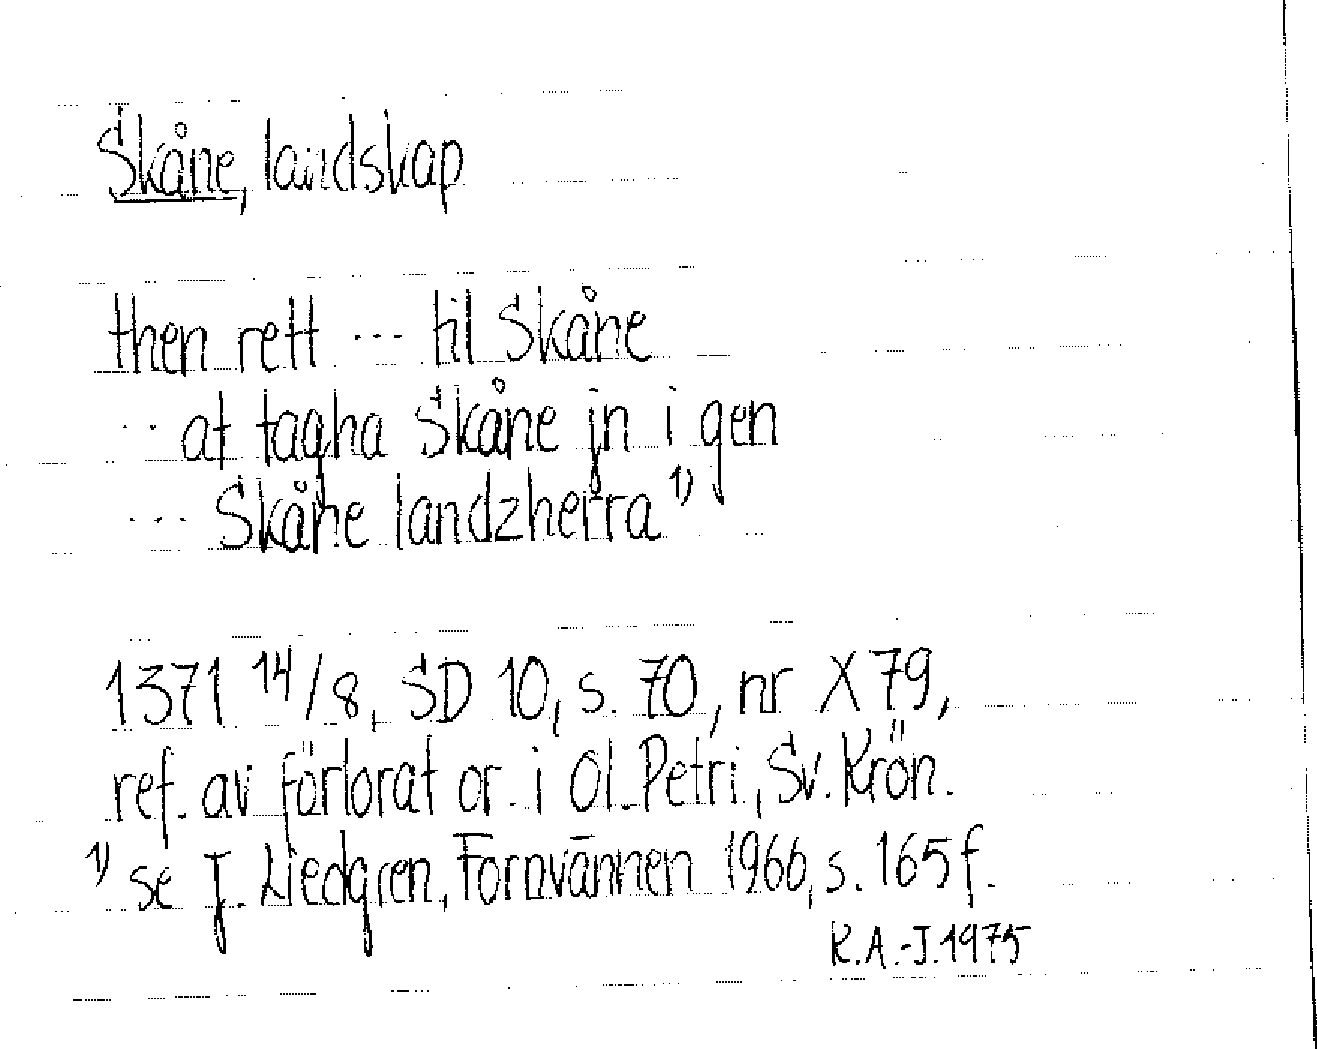 Skåne, landskap
then rett ... til Skåne
.. at tagha Skåne jn i gen
... Skåne landzherra 1)
1371 14/8, SD 10, s. 70, nr X 79,
ref. av förlorat or. i Ol. Petri, Sv. Krön.
1) se J. Liedgren, Fornvännen 1966, s. 165 f.
R.A.-J. 1975